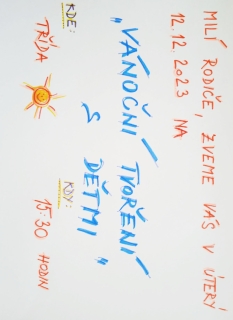 MILÍ RODIČE, ZVEME VÁS V ÚTERÝ
12.12.2023 NA
"VÁNOČNÍ TVOŘENÍ
S DĚTMI"
KDE: KDY:
TŘÍDA 15:30 HODIN